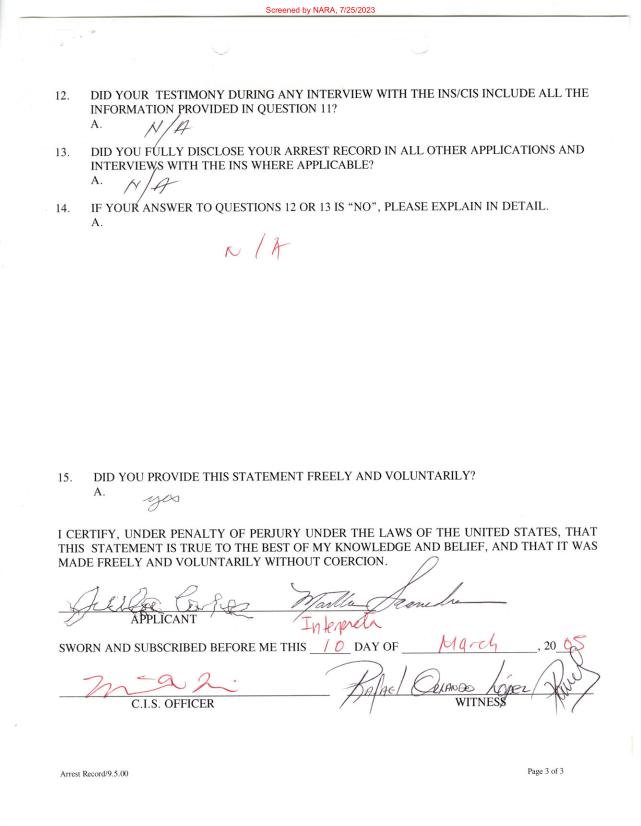 Screened by NARA, 7/25/2023
12. DID YOUR TESTIMONY DURING ANY INTERVIEW WITH THE INS/CIS INCLUDE ALL THE
INFORMATION PROVIDED IN QUESTION 11?
A. N/A
13. DID YOU FULLY DISCLOSE YOUR ARREST RECORD IN ALL OTHER APPLICATIONS AND
INTERVIEWS WITH THE INS WHERE APPLICABLE?
A. N/A
14. IF YOUR ANSWER TO QUESTIONS 12 OR 13 IS “NO”, PLEASE EXPLAIN IN DETAIL.
A.
N/A
15. DID YOU PROVIDE THIS STATEMENT FREELY AND VOLUNTARILY?
A. yes
I CERTIFY, UNDER PENALTY OF PERJURY UNDER THE LAWS OF THE UNITED STATES, THAT
THIS STATEMENT IS TRUE TO THE BEST OF MY KNOWLEDGE AND BELIEF, AND THAT IT WAS
MADE FREELY AND VOLUNTARILY WITHOUT COERCION.
APPLICANT
SWORN AND SUBSCRIBED BEFORE ME THIS 10 DAY OF March, 20 05
RAFAEL ORLANDO López
C.I.S. OFFICER WITNESS
Arrest Record/9.5.00 Page 3 of 3